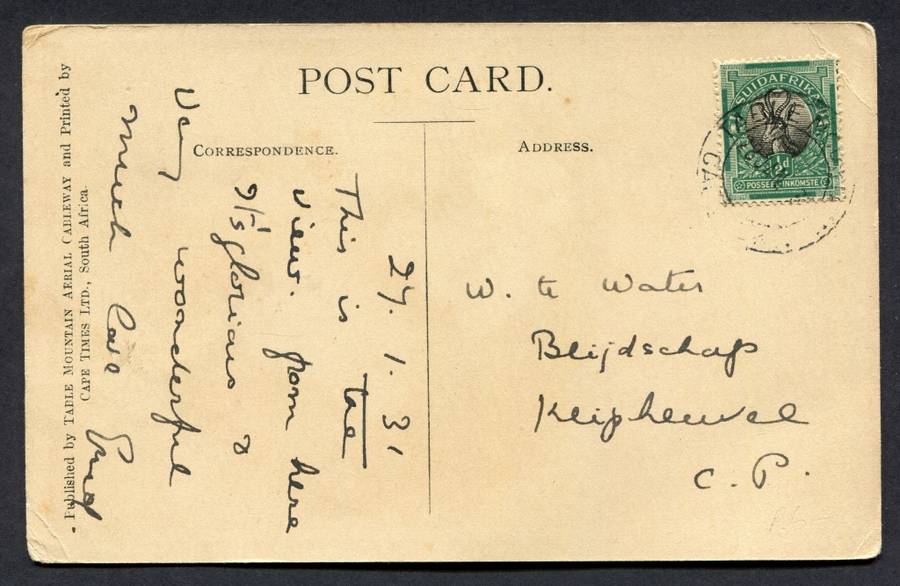 POST CARD.
CORRESPONDENCE.
ADDRESS.
Published by TABLE MOUNTAIN AERIAL CABLEWAY and Printed by
CAPE TIMES LTD., South Africa.
27. 1. 31
This is the
view from here
It's glorious &
Very wonderful
Much love Enid
W. te Water
Blijdschap
Klipheuvel
C. P.
SUIDAFRIKA
½d
POSSEEL-INKOMSTE